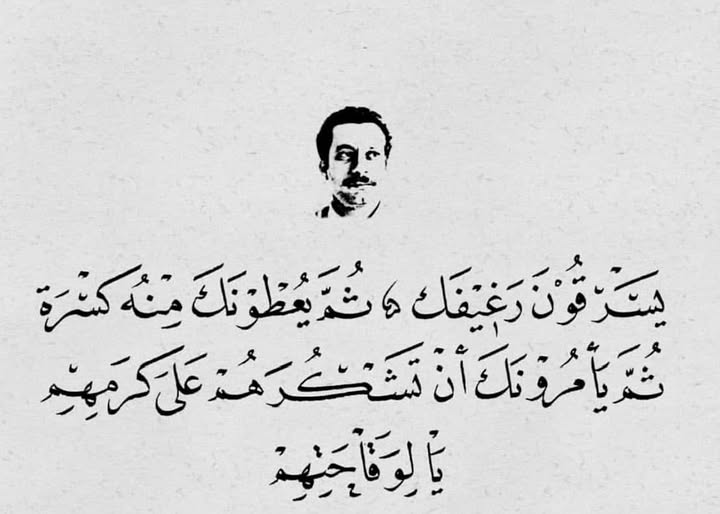 يَسْرِقُوْنَ رَغِيْفَكَ ، ثُمَّ يُعْطُوْنَكَ مِنْهُ كَسْرَة
ثُمَّ يَأْمُرُوْنَكَ أَنْ تَشْكُرَهُمْ عَلَى كَرَمِهِمْ
يَا لِوَقَاحَتِهِمْ